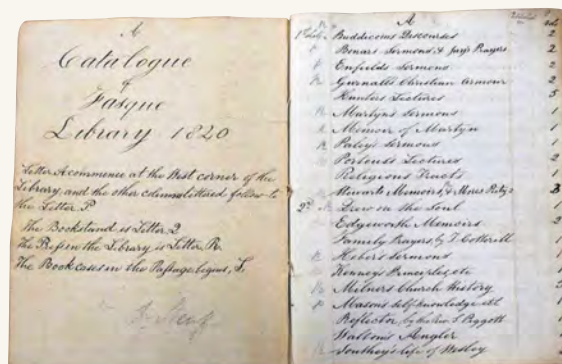 A
Catalogue
of
Fasque
Library 1820
Letter A commence at the West corner of the
Library, and the other columns lettered follow to
the Letter P
The Bookstand is Letter Q
The Press in the Library is Letter R.
The Bookcases in the Passage begins, S.
A
1st Shelf Buddicoms Discourses 2
Bonars Sermons, & Jay's Prayers 2
Enfields Sermons 2
Gurnalls Christian Armour 2
Hunters Lectures 5
Martyns Sermons 1
Memoir of Martyn 1
Paley's Sermons 1
Porteus Lectures 2
Religious Tracts 1
Stewarts Memoirs, & Mores Piety 3
2nd Drew on the Soul 1
Edgeworth Memoirs 2
Family Prayers by T. Cotterill 1
Hebers Sermons 1
Kenneys Principles, etc 1
Milners Church History
Masons Self knowledge
Reflector by the Rev. S. Piggott
Waltons Angler
Southey's Life of Wesley